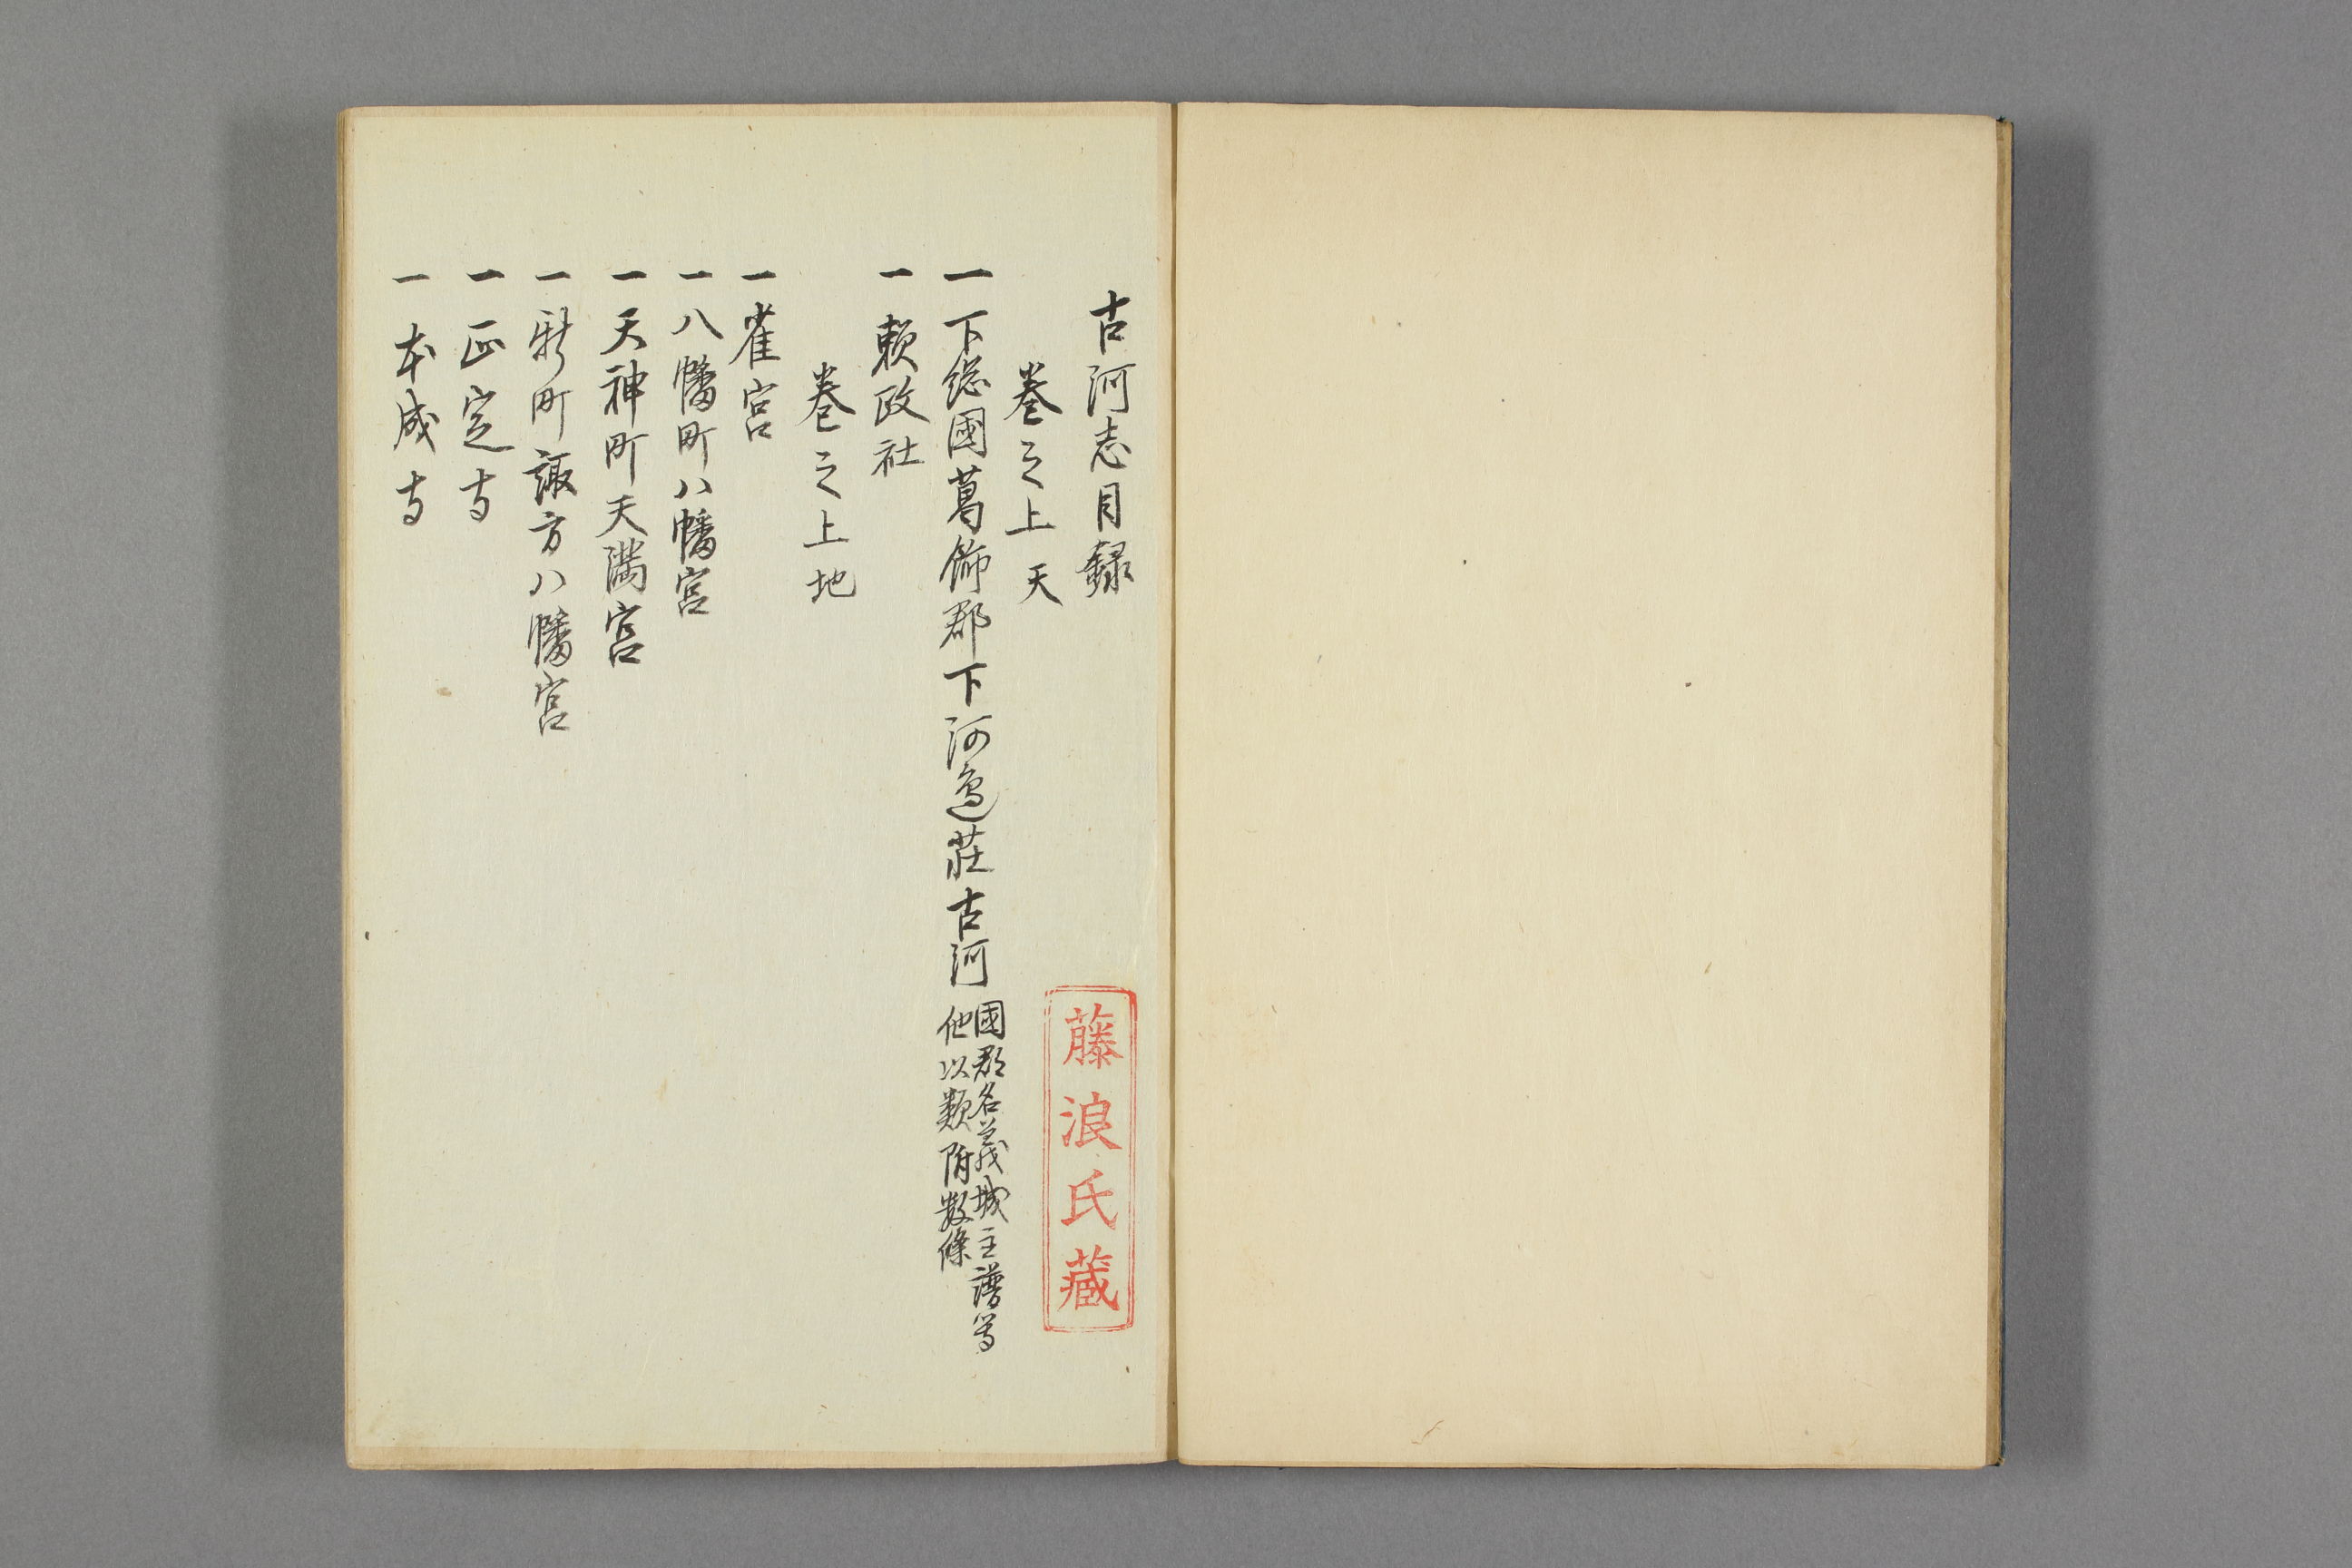 古河志目録
巻之上 天
一 下総國葛飾郡下河邉荘古河
國郡名義城主譜等
他以類附數條
一 頼政社
巻之上 地
一 雀宮
一 八幡町八幡宮
一 天神町天満宮
一 新町諏方八幡宮
一 正定寺
一 本成寺
藤浪氏藏